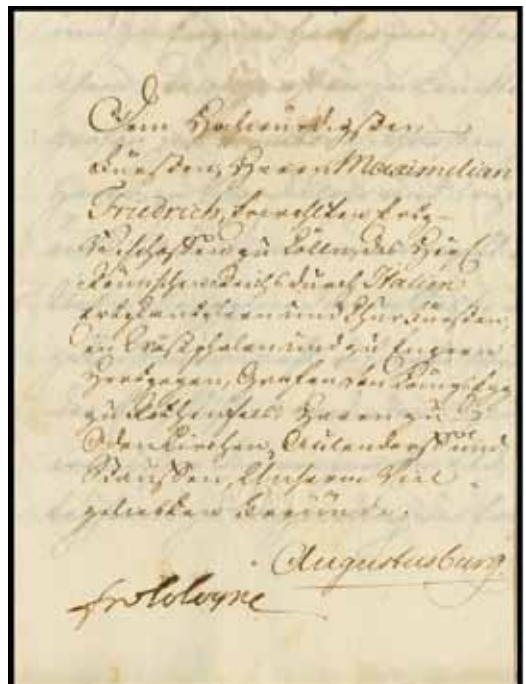 Dem Hochwürdigsten
Fürsten, Herrn Maximilian
Friedrich, Erwehlten Ertz-
Bischoffen zu Cölln, des Heil:
Römischen Reichs durch Italien
Ertzkantzlern und Churfürsten,
in Westphalen und zu Engern
Hertzogen, Grafen von Königsegg
zu Rothenfels Herrn zu
Odenkirchen, Aulendorff und
Stauffen, Unserm Viel
geliebten Freünde.
Augustusburg.
Cologne